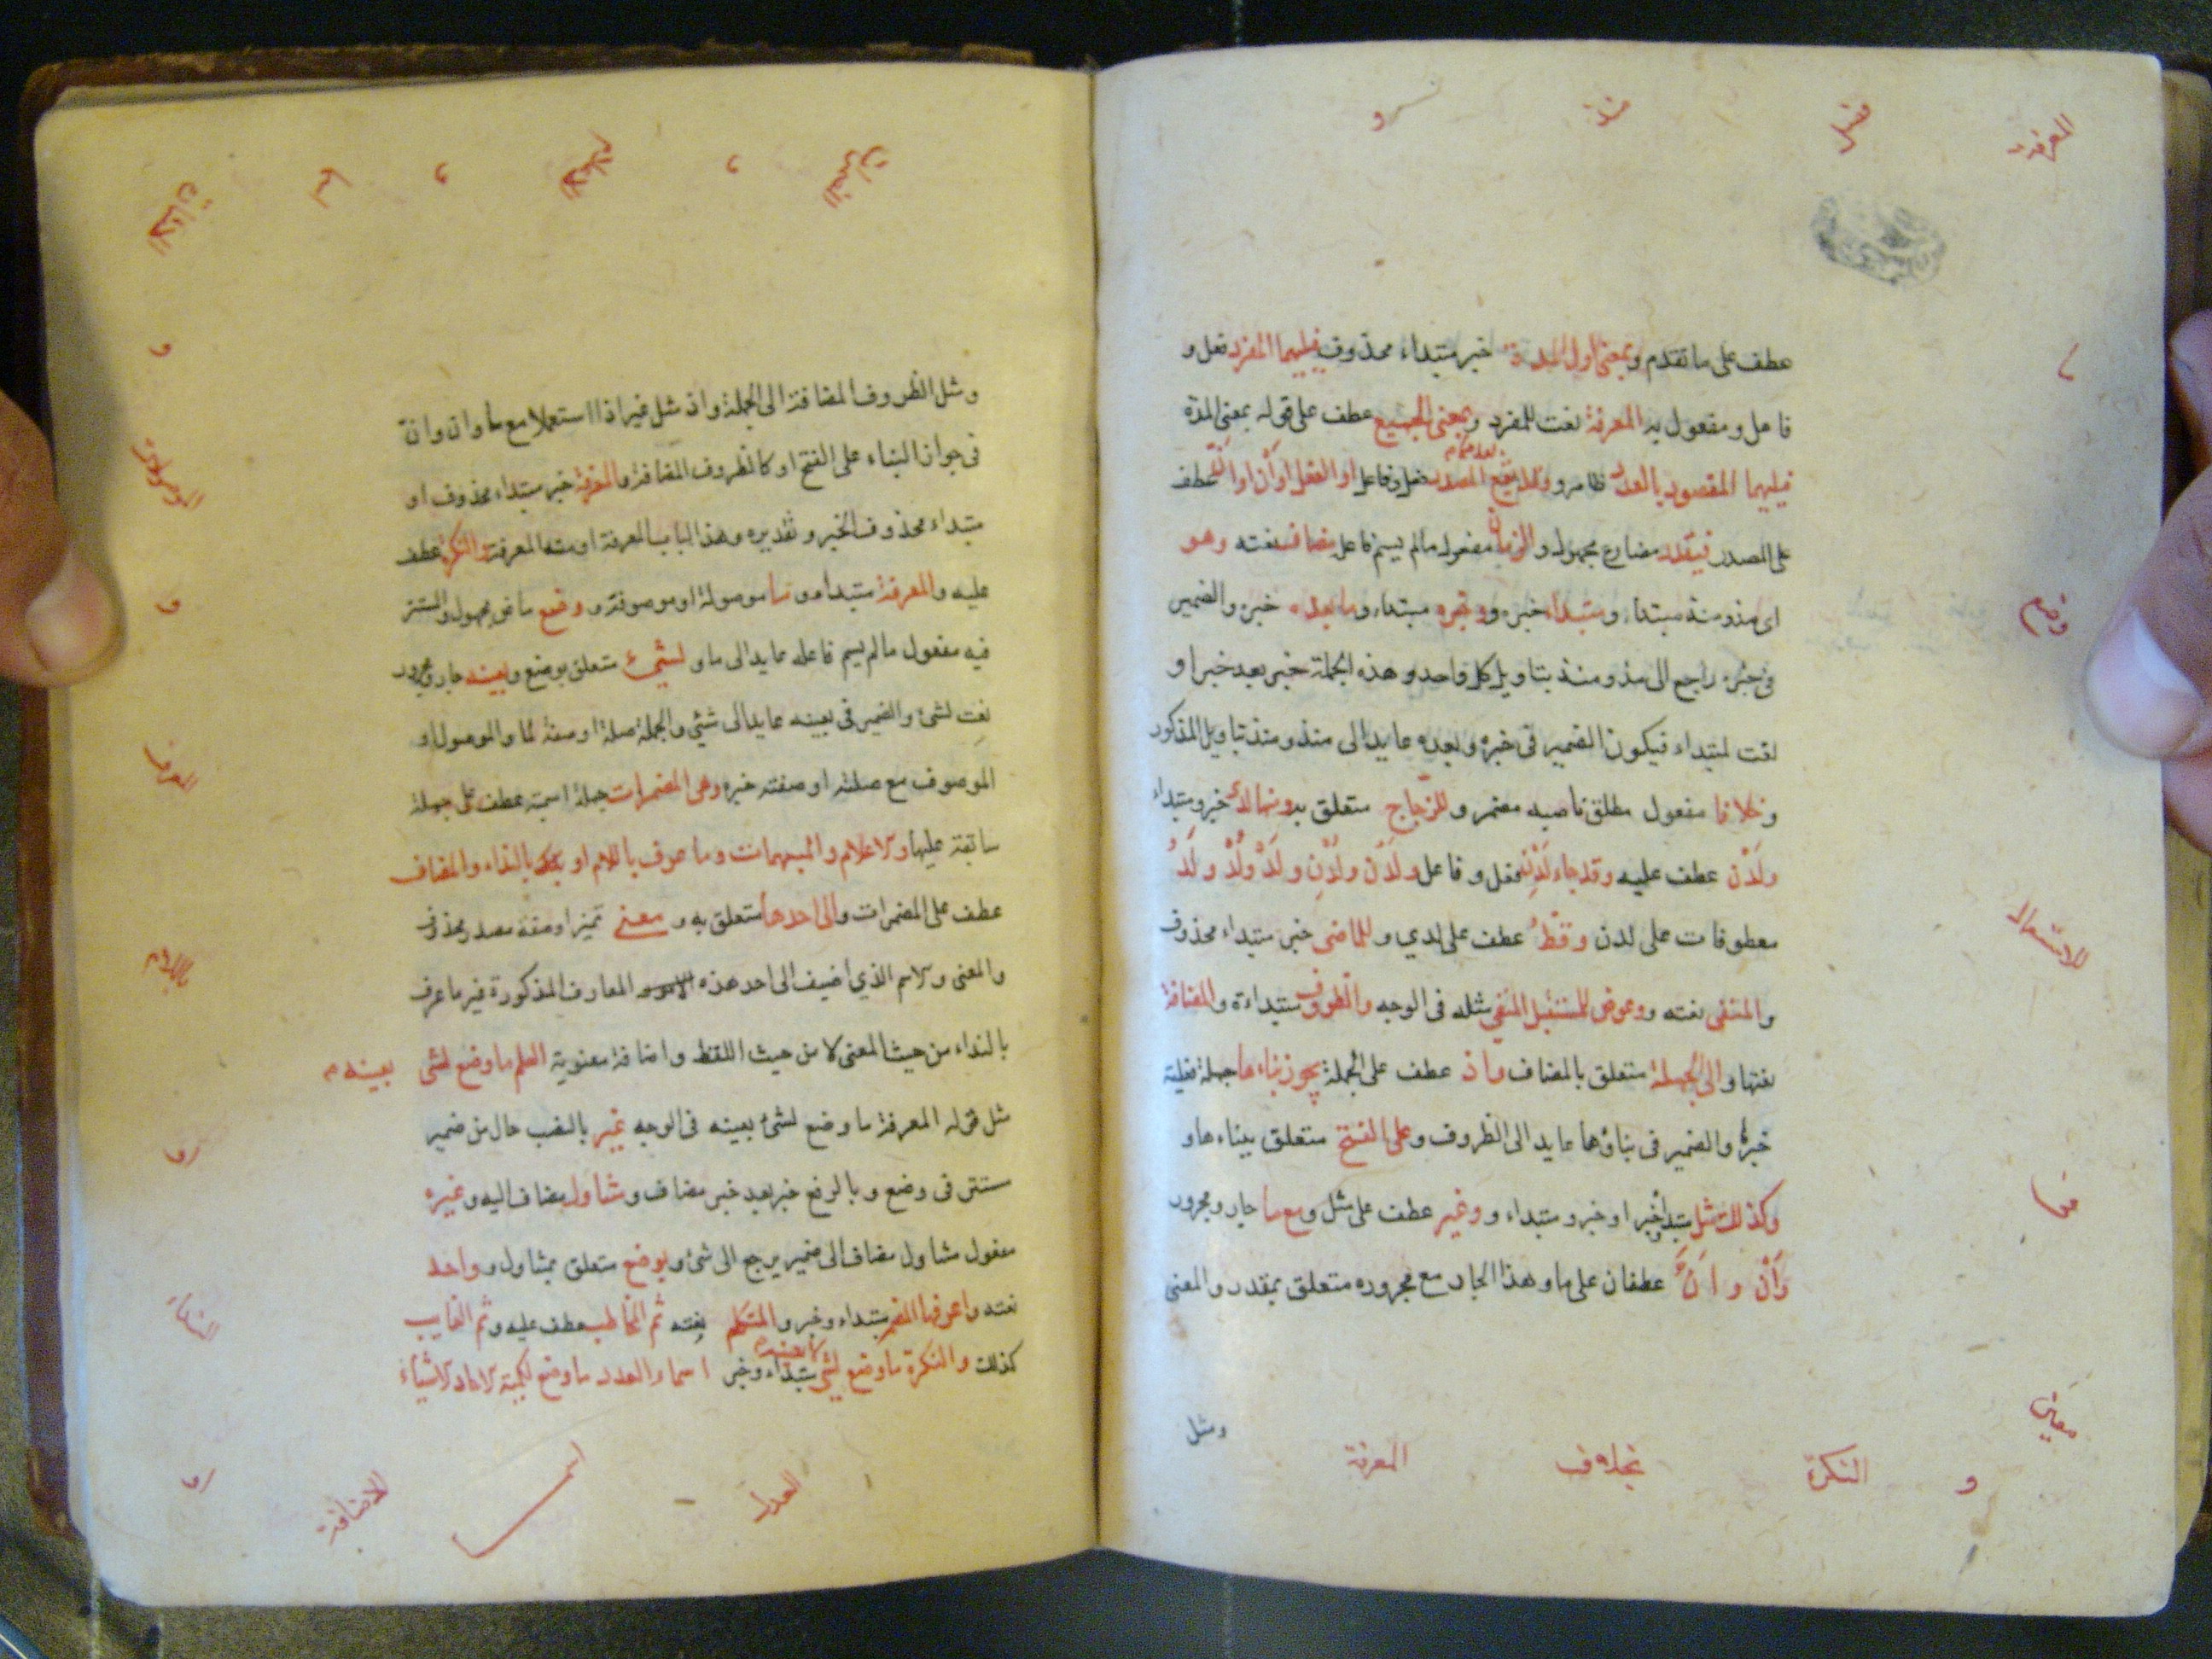 عطف على ما تقدم وبمعنى اول المدة خبر مبتداء محذوف فيليهما المفرد فعل و
فاعل ومفعول به المعرفة نعت للمفرد وبمعنى الجميع عطف على قوله بمعنى المدة
فيليهما المقصود بالعدد ظاهر وقد يقع المصدر فعل وفاعل او الفعل او أن او انّ عطف
على المصدر فيقدر مضارع مجهول والزمان مفعول مالم يسم فاعل مضاف نعته وهو
اى مذ ومنذ مبتداء ومبتداء خبره وخبره مبتداء وما بعده خبره والضمير
فى خبره راجع الى مذ ومنذ بتاويل كل واحد وهذه الجملة خبر بعد خبر او
نعت لمبتداء فيكون الضمير فى خبره وبعده عايد الى منذ ومنذ بتاويل المذكور
وخلافا مفعول مطلق ناصبه مضمر وللزجاج متعلق به ومنها لدى خبر ومبتداء
ولدن عطف عليه وقد جاء لدن فعل وفاعل ولدن ولدن ولد ولد ولد
معطوفات على لدن وقط عطف على لدي وللماضى خبر مبتداء محذوف
والمنفى نعته وعوض للمستقبل المنفى مثله فى الوجه والظروف مبتداءة والمضافة
نعتها والى الجملة متعلق بالمضاف واذ عطف على الجملة يجوز بناءها جملة فعلية
خبره والضمير فى بناؤها عايد الى الظروف وعلى الفتح متعلق ببناءها و
وكذلك مثل مبتداء وخبر او خبر ومبتداء و وغير عطف على مثل ومع ما جار ومجرور
وأن و انّ عطفان على ما وهذا الجار مع مجروره متعلق بمقدر والمعنى
ومثل
و النكرة بخلاف المعرفة
ومثل الظروف المضافة الى الجملة واذ مثل غير اذا استعملا مع ما وان وانّ
فى جواز البناء على الفتح او كالظروف المضافة والمعرفة خبر مبتداء محذوف او
مبتداء محذوف الخبر وتقديره وهذا الباب المعرفة او منه المعرفة والنكرة عطف
عليه والمعرفة مبتداء وما موصولة او موصوفة و وضع ماض مجهول والمستتر
فيه مفعول مالم يسم فاعله عايد الى ما و لشيء متعلق بوضع وبعينه جار ومجرور
نعت لشئ والضمير فى بعينه عايد الى شئي والجملة صلة او صفة لما والموصول او
الموصوف مع صلته او صفته خبره وهى المضمرات جملة اسمية عطف على جملة
سابقة عليها والاعلام والمبهمات وما عرف باللام او بالنداء والمضاف
عطف على المضمرات والى احدها متعلق به و معنى تميز او صفة مصدر محذوف
والمعنى والاسم الذي اضيف الى احد هذه المعارف المذكورة غير ما عرف
بالنداء من حيث المعنى لا من حيث اللفظ واضافة معنوية العلم ما وضع لشئ بعينه
مثل قوله المعرفة ما وضع لشئ بعينه فى الوجه غير بالنصب حال من ضمير
مستتر فى وضع وبالرفع خبر بعد خبر مضاف ومتناول مضاف اليه وغيره
مفعول متناول مضاف الى ضمير يرجع الى شئ وبوضع متعلق بمتناول و واحد
نعته واعرفها المضمر مبتداء وخبر والمتكلم نعته ثم المخاطب عطف عليه وثم الغايب
كذلك والنكرة ما وضع لشئ لا بعينه مبتداء وخبر اسماء العدد ما وضع لكمية الاحاد الاشياء
العدد
الاضافة